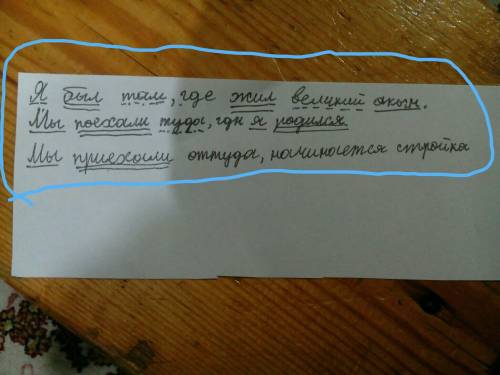 Я был там, где жил великий акын.
Мы поехали туда, где я родился
Мы приехали оттуда, начинается стройка